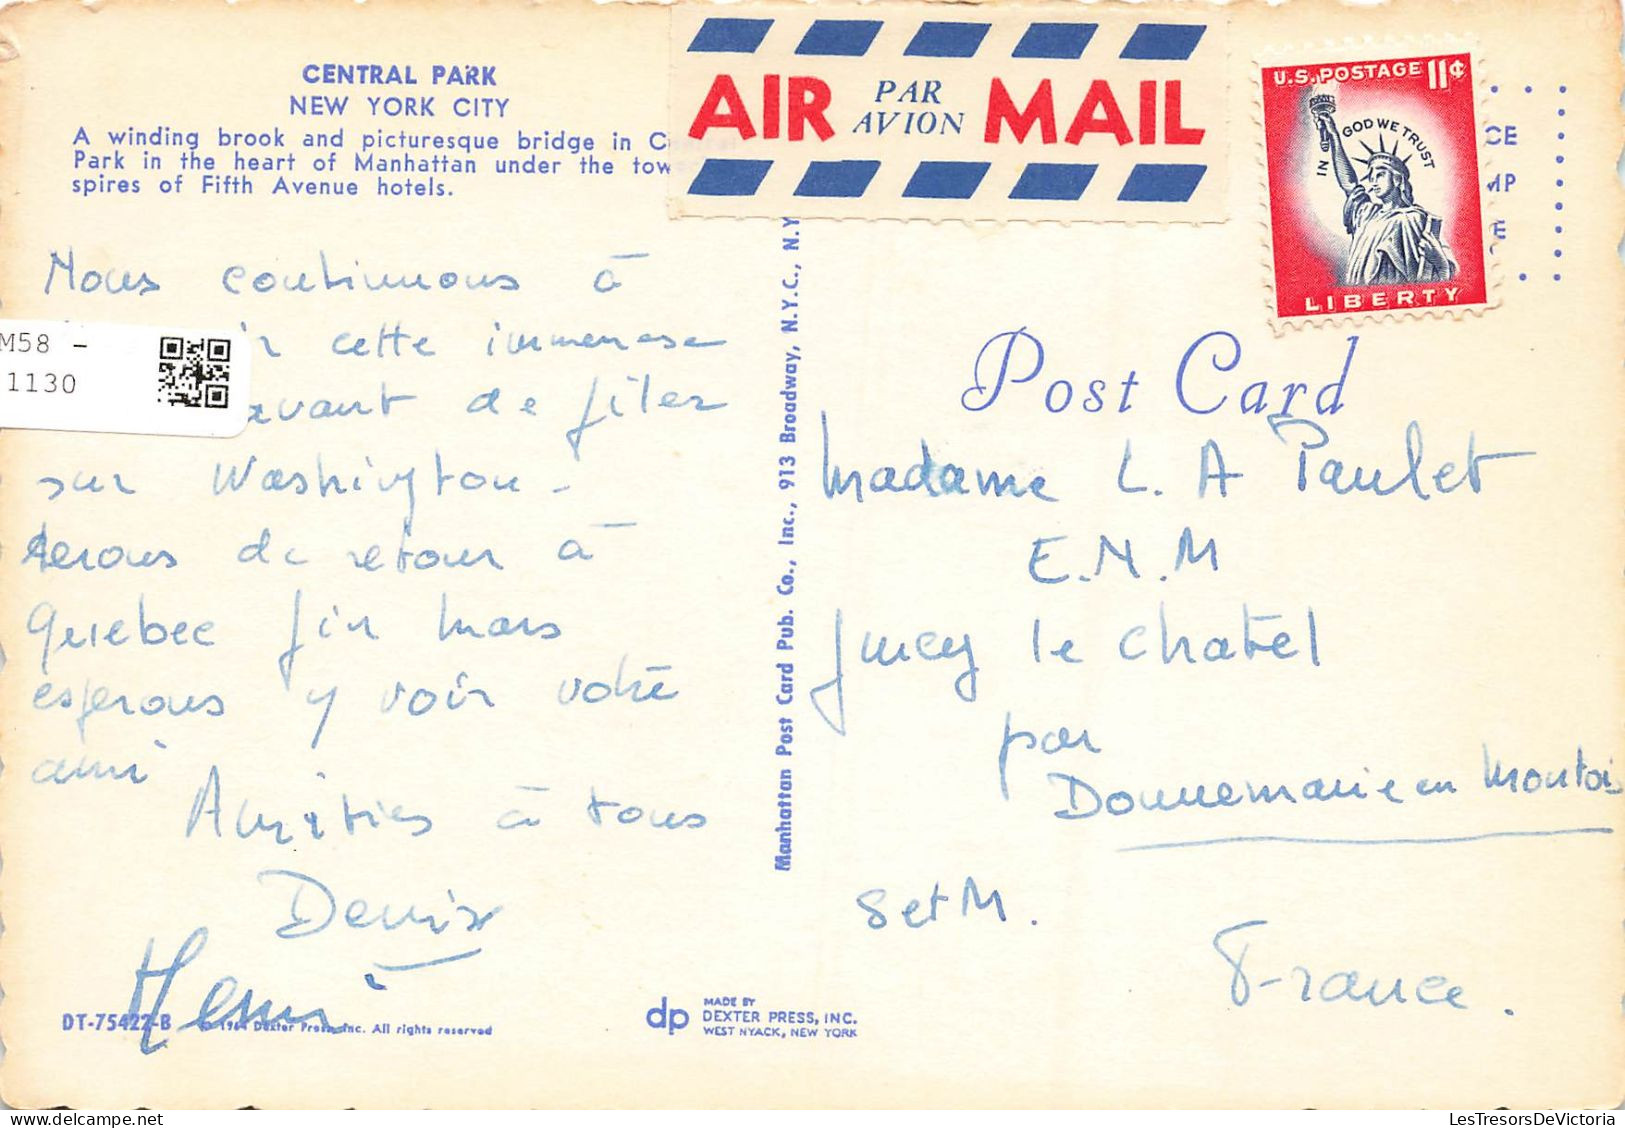 CENTRAL PARK
NEW YORK CITY
A winding brook and picturesque bridge in
Park in the heart of Manhattan under the
spires of Fifth Avenue hotels.
AIR PAR AVION MAIL
U.S. POSTAGE 11¢
IN GOD WE TRUST
LIBERTY
Nous continuons à
cette immense
avant de filer
sur Washington -
serons de retour à
Quebec fin mars
esperons y voir votre
ami
Amitiés à tous
Denise
Henri
M58 -
1130
Manhattan Post Card Pub. Co., Inc., 913 Broadway, N.Y.C., N.Y
Post Card
Madame L. A Paulet
E.N.M
Jucey le chatel
par
Donnemarie en Montois
S et M.
France.
DT-75422-B © 1964 Dexter Press, Inc. All rights reserved
dp MADE BY
DEXTER PRESS, INC.
WEST NYACK, NEW YORK
LesTresorsDeVictoria